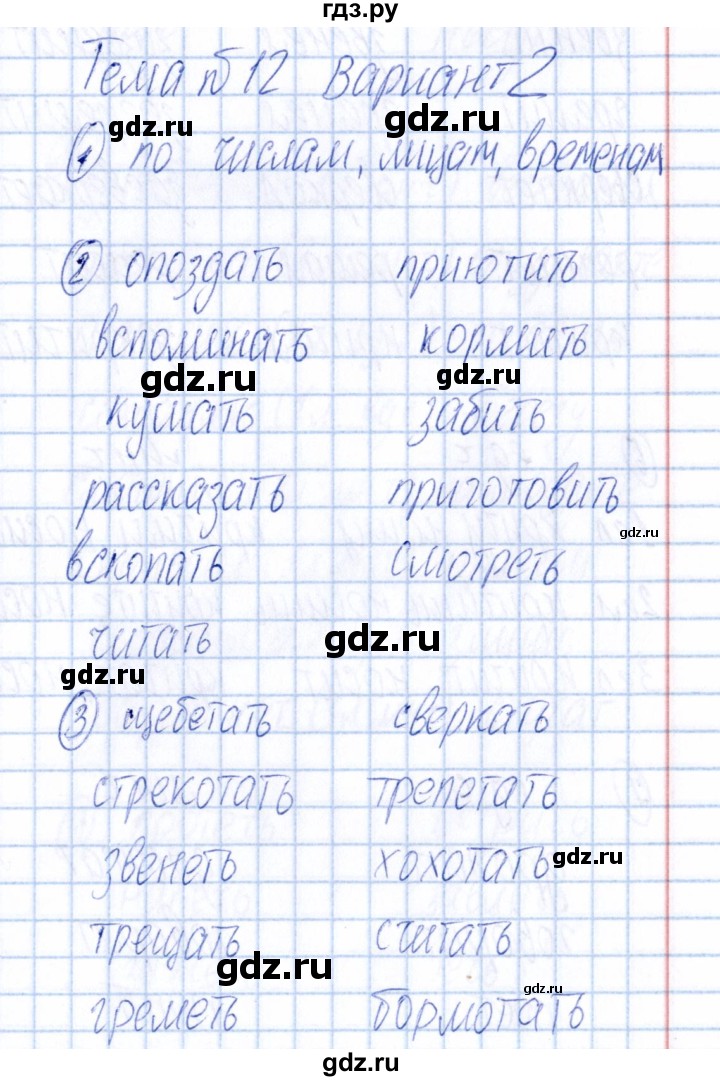 гдз.ру
Тема №12 Вариант 2
gdz.ru gdz.ru
1 по числам, лицам, временам
2 опоздать приютить
вспоминать кормить
gdz.ru gdz.ru
кушать забить
рассказать приготовить
gdz.ru
вскопать смотреть
читать gdz.ru
gdz.ru
3 щебетать сверкать
стрекотать трепетать
звенеть хохотать gdz.ru
трещать считать
gdz.ru gdz.ru
греметь бормотать
gdz.ru